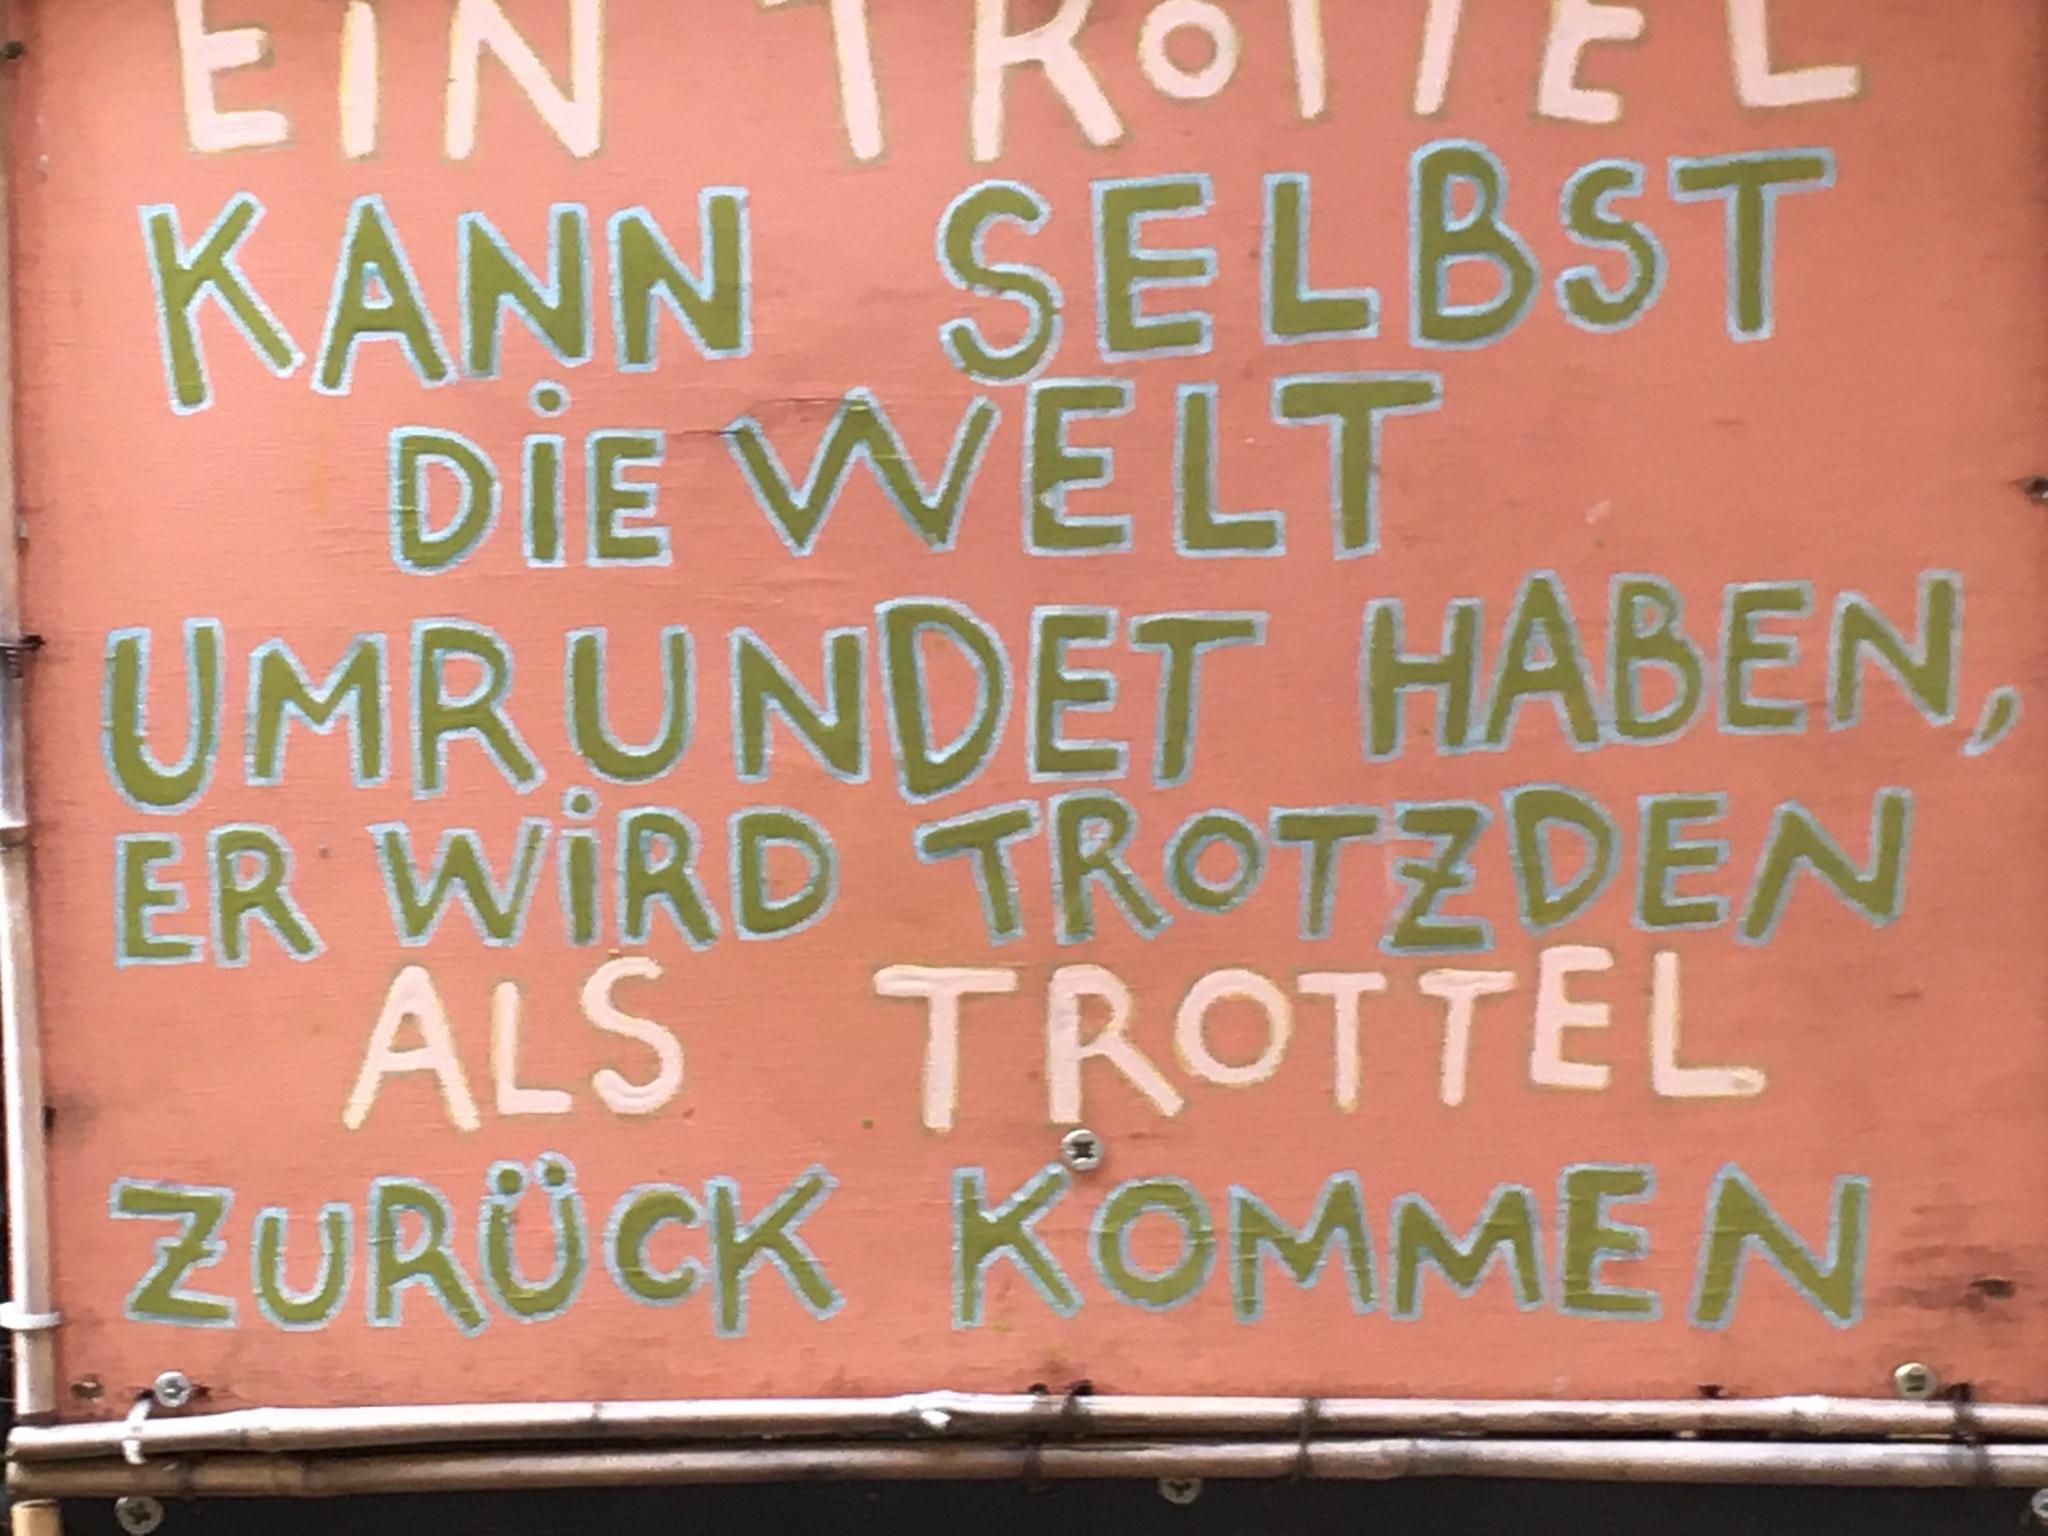 EIN TROTTEL
KANN SELBST
DIE WELT
UMRUNDET HABEN,
ER WIRD TROTZDEN
ALS TROTTEL
ZURÜCK KOMMEN